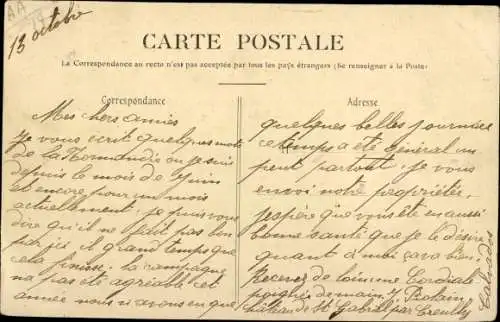 13 octobre
CARTE POSTALE
La Correspondance au recto n'est pas acceptée par tous les pays étrangers (Se renseigner à la Poste)
Correspondance
Mes chers amies
Je vous ecrit quelques mots
de la Normandie ou je suis
depuis le mois de juin
et encore pour un mois
actuellement. je puis vous
dire qu'il ne fait pas bon
par ici il grand temps que
cela finisse. la campagne
na pas été agréable cet
année nous n'avons eu que
Adresse
quelques belles journées
ce temps a été général un
peut partout. je vous
envoi notre propriétée
j'espère que vous ête en aussi
bonne santé que je le désire
quant a moi ça va bien.
Recevez de loin une Cordiale
poignée de main J.
château de St Gabriel par Creully
Calvados